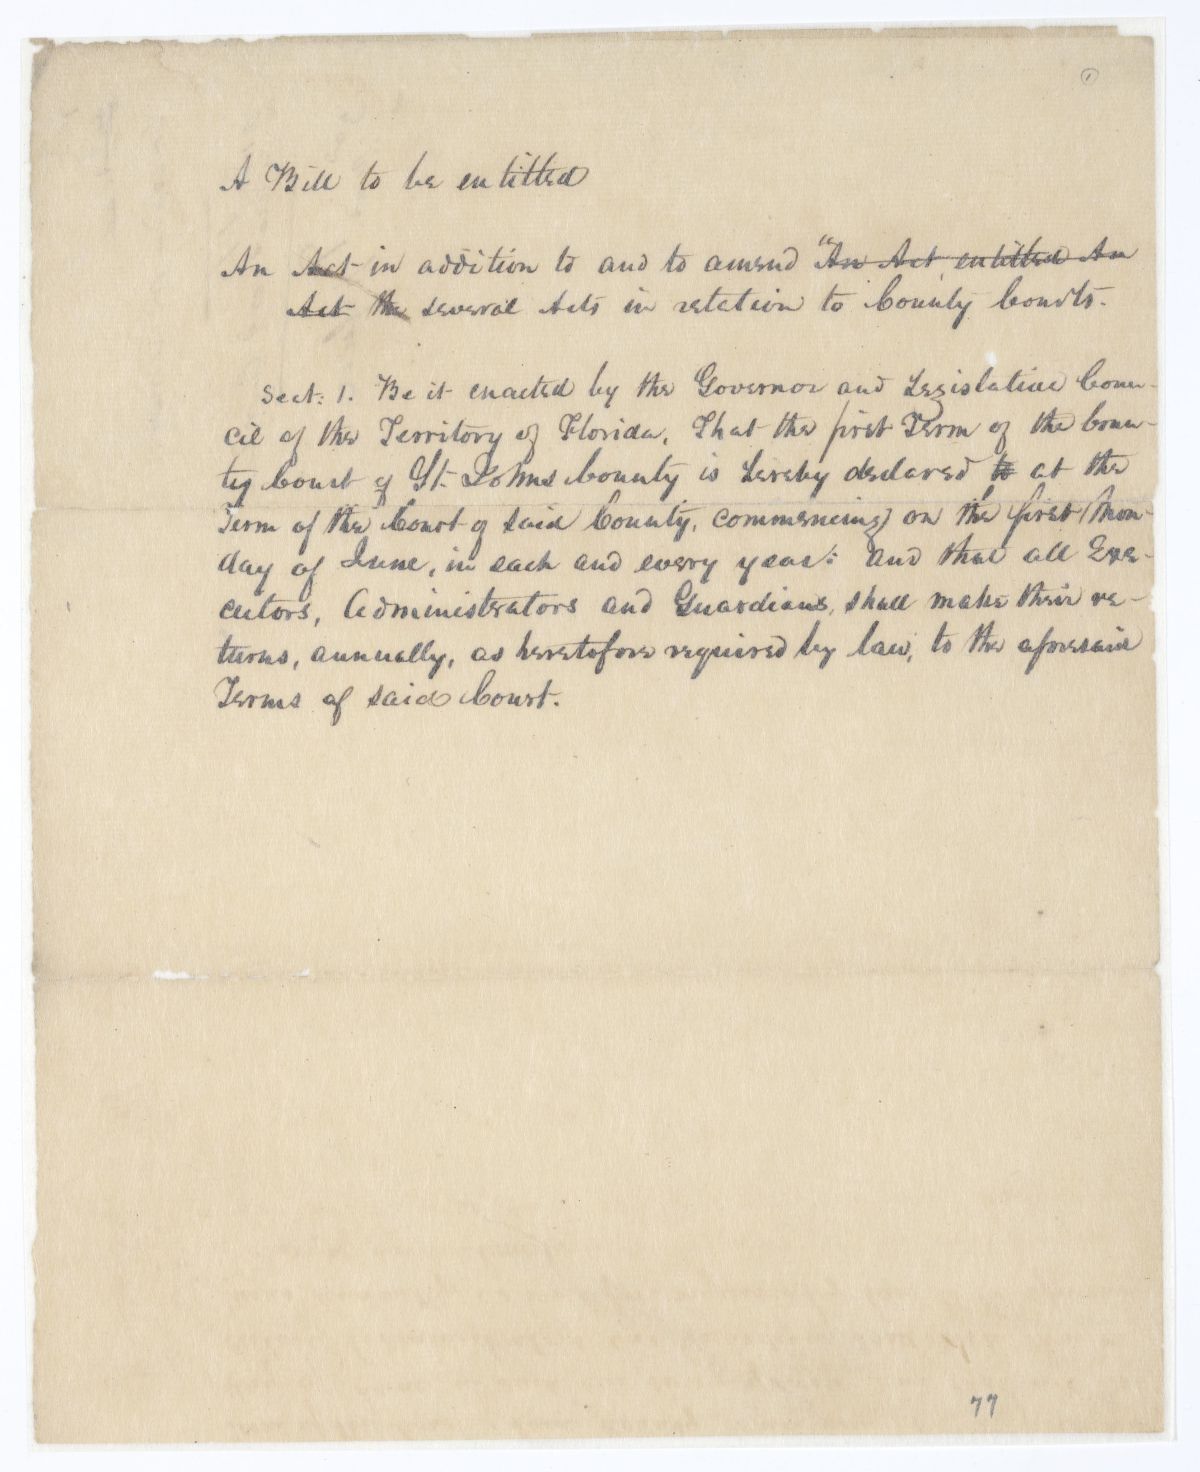 1
A Bill to be entitled
An Act in addition to and to amend "An Act entitled An
Act the several Acts in relation to County Courts.
Sect: 1. Be it enacted by the Governor and Legislative Coun-
cil of the Territory of Florida, That the first Term of the Coun-
ty Court of St. Johns County is hereby declared to at the
Term of the Court of said County, commencing on the first Mon-
day of June, in each and every year: and that all Exe-
cutors, Administrators and Guardians, shall make their re-
turns, annually, as heretofore required by law, to the aforesaid
Terms of said Court.
77